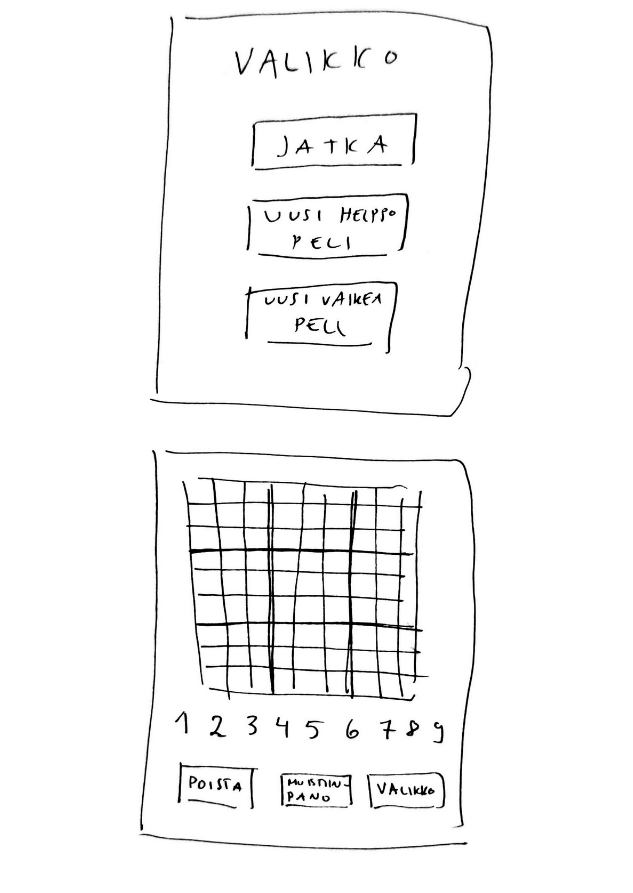 VALIKKO
JATKA
UUSI HELPPO
PELI
UUSI VAIKEA
PELI
1 2 3 4 5 6 7 8 9
POISTA
MUISTIIN-
PANO
VALIKKO